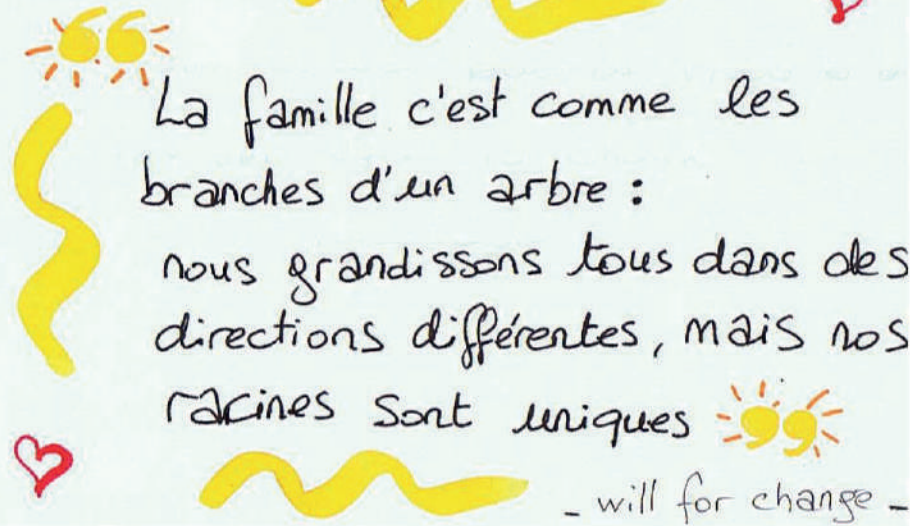 “La famille c'est comme les
branches d'un arbre :
nous grandissons tous dans des
directions différentes, mais nos
racines sont uniques”
- will for change -